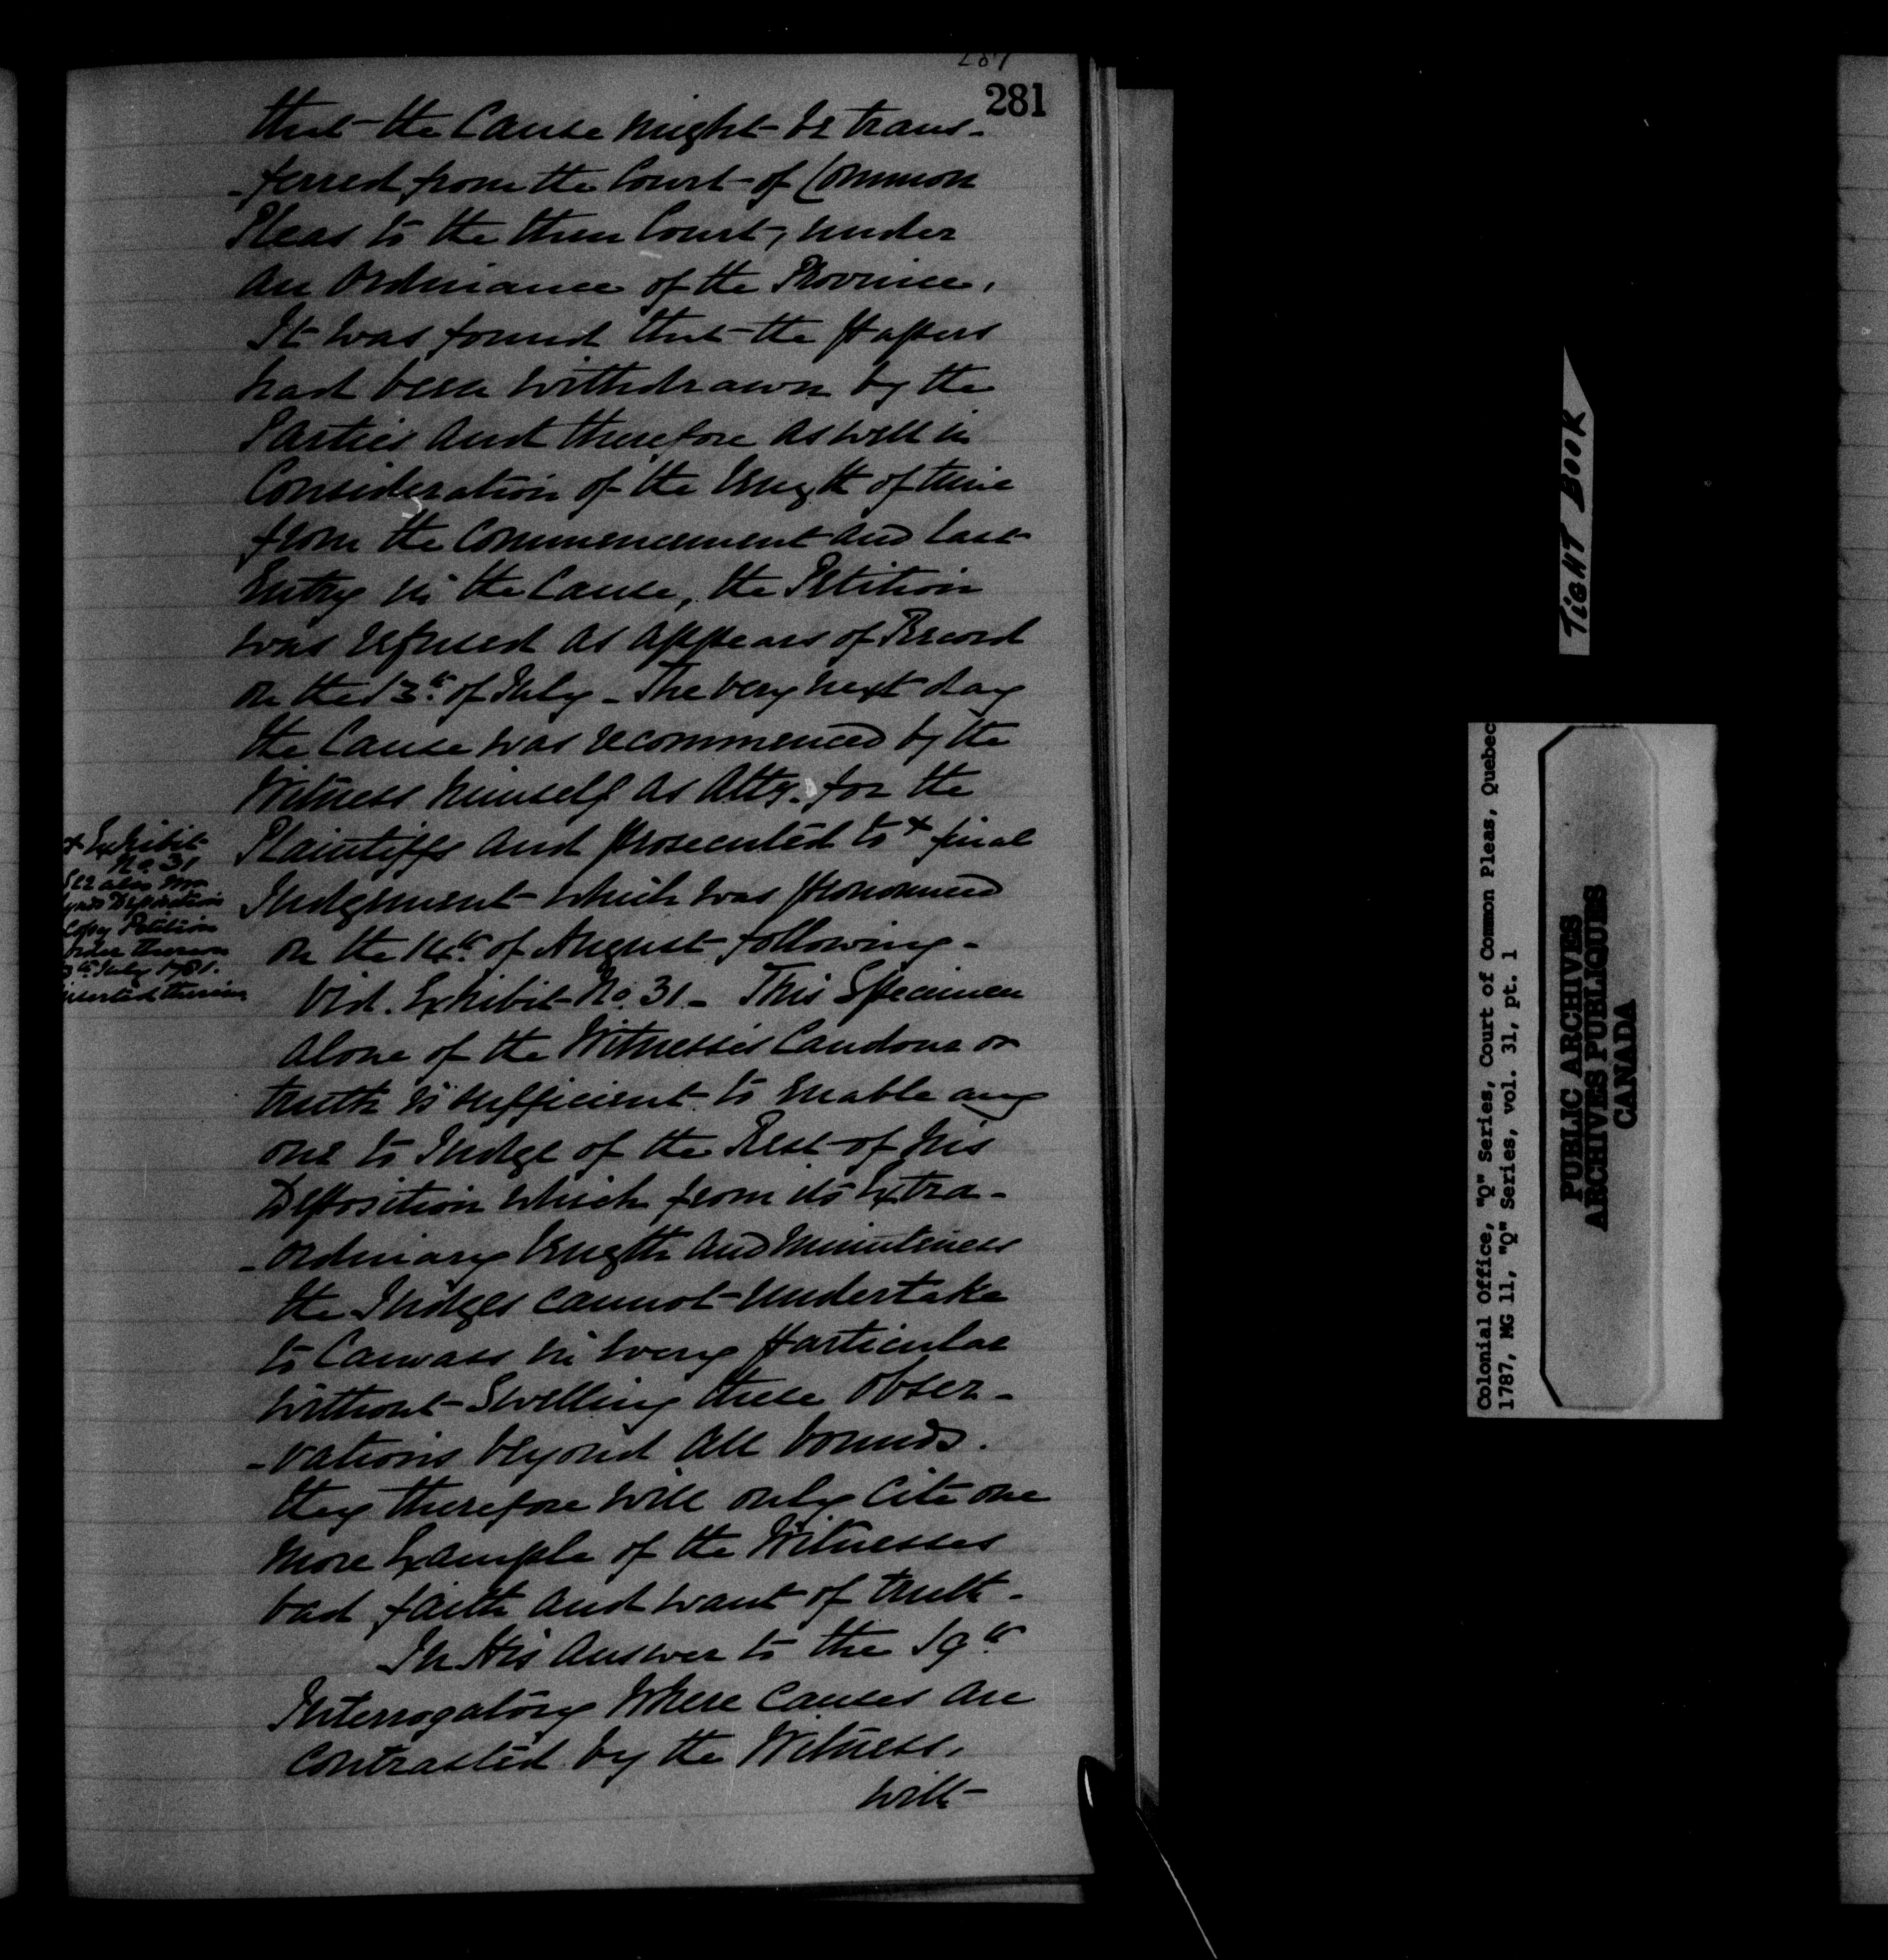 281
that the Cause might be trans-
-ferred from the Court of Common
Pleas to the then Court, under
an Ordinance of the Province,
It was found that the papers
had been withdrawn by the
Parties and therefore as well in
Consideration of the length of time
from the Commencement and last
Entry in the Cause, the Petition
was refused as appears of Record
on the 13th of July - The very next day
the Cause was recommenced by the
Witness himself as Atty. for the
Plaintiffs and prosecuted to + final
Judgement which was pronounced
on the 14th of August following -
Vid. Exhibit No. 31 - This Specimen
alone of the Witnesses Candour or
truth is sufficient to enable any
one to Judge of the Rest of his
Deposition which from its Extra-
-ordinary length and minuteness
the Judges cannot undertake
to Canvass in every particular
without Swelling these Obser-
-vations beyond all bounds.
they therefore will only Cite one
more Example of the Witnesses
bad faith and want of truth -
In His Answer to the 19th
Interrogatory Where Causes are
Contrasted by the Witness,
with
+ Exhibit
No. 31
See also
Deposition
Copy Petition
order thereon
July 1781.
inserted therein
TIGHT BOOK
Colonial Office, "Q" Series, Court of Common Pleas, Quebec
1787, MG 11, "Q" Series, vol. 31, pt. 1
PUBLIC ARCHIVES
ARCHIVES PUBLIQUES
CANADA